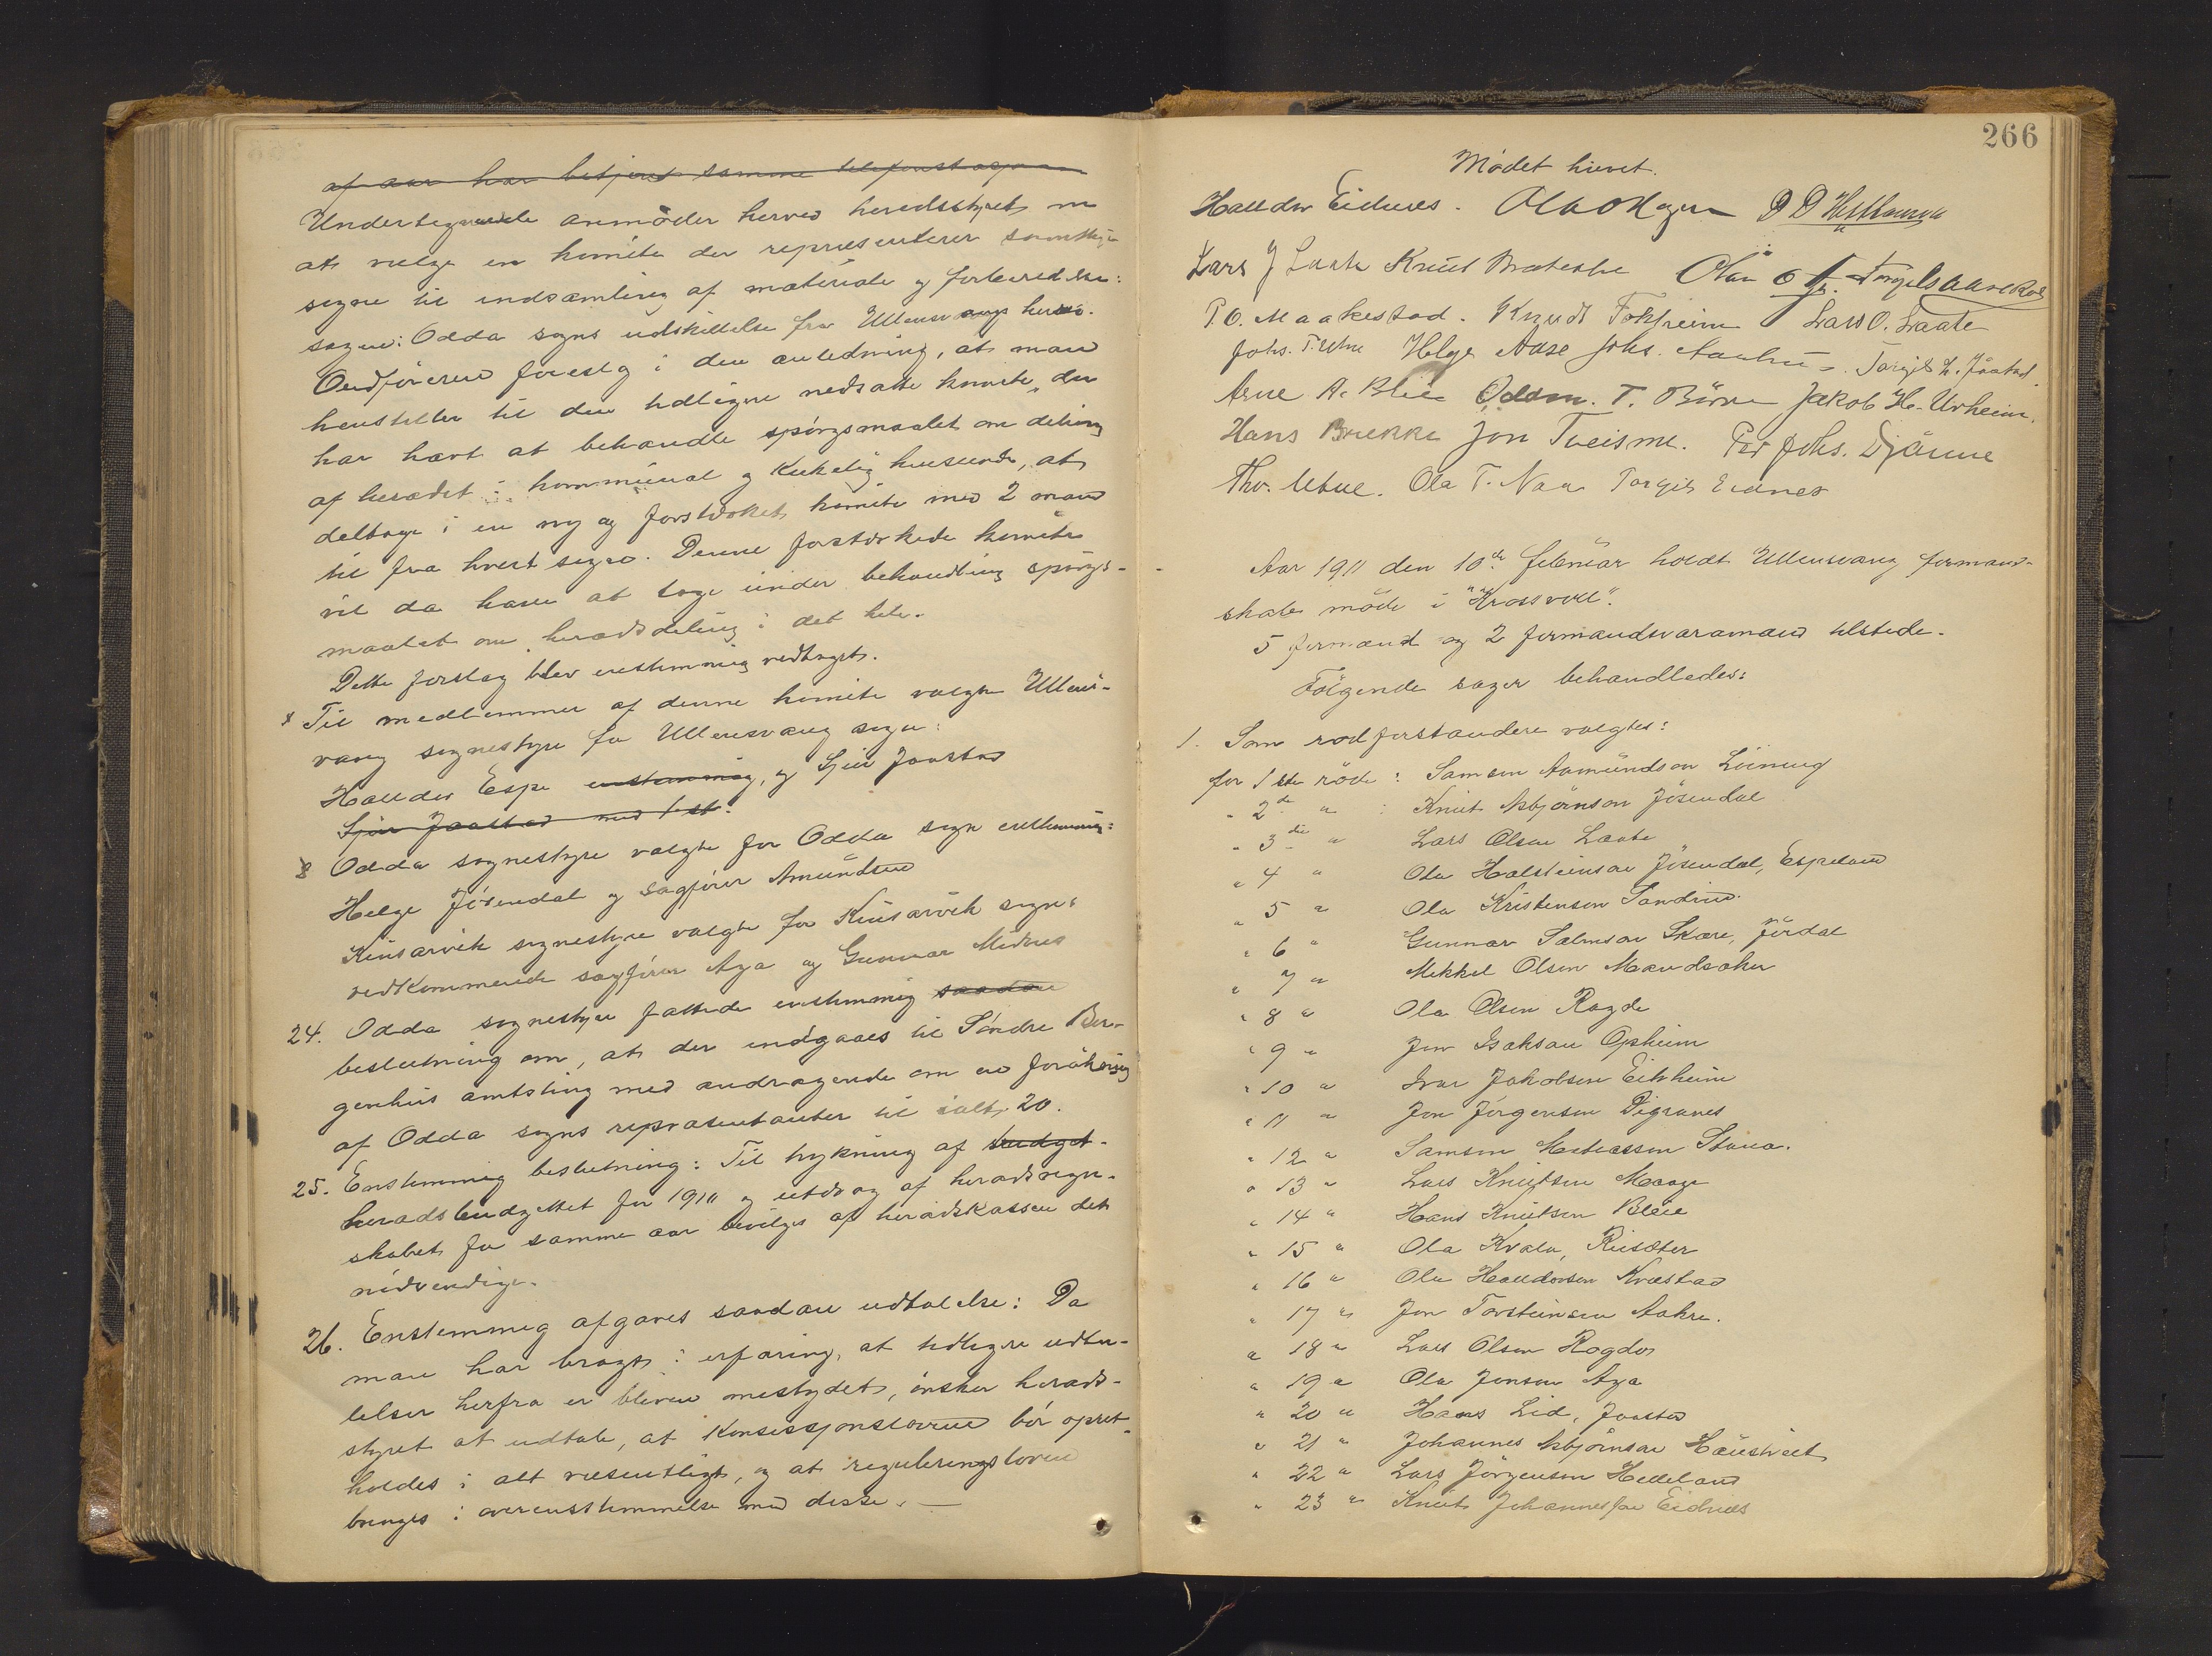 af aar har betjent samme telefonstasjon
Undertegnede anmöder herved heredsstyret om
at vælge en komite der repræsenterer samtlige
sogne til indsamling af materiale og forberedelse:
sagen: Odda sogns udskillelse fra Ullensvang herad.
Ordföreren foreslog i den anledning, at man
henstiller til den tidligere nedsatte komite, der
har havt at behandle spörgsmaalet om deling
af heradet i kommunal og kirkelig henseende, at
deltage i en ny og forstærket komite med 2 mand
til fra hvert sogn. Denne forstærkede komite
vil da have at tage under behandling spörgs-
maalet om heradsdeling i det hele.
Dette forslag blev enstemmig vedtaget.
Til medlemmer af denne komite valgte Ullens-
vang sognestyre for Ullensvang sogn:
Halldor Espe enstemmig, og Sjur Jaastad
Sjur Jaastad med 1 st.
Odda sognestyre valgte for Odda sogn enstemmig:
Helge Jösendal og sagförer Amundsen
Kinsarvik sognestyre valgte for Kinsarvik sogns
vedkommende sagförer Aga og Gunnar Midnes
24. Odda sognestyre fattede enstemmig saadan
beslutning om, at der indgaaes til Söndre Ber-
genhus amtsting med andragende om en forökning
af Odda sogns repræsentanter til ialt 20.
25. Enstemmig beslutning: Til trykning af budget-
heradsbudgettet for 1911 og utdrag af heradsregn-
skabet for samme aar bevilges af heradskassen det
nödvendige.
26. Enstemmig afgaves saadan udtalelse: Da
man har bragt i erfaring, at tidligere udta-
lelser herfra er bleven mestydet, önsker herads-
styret at udtale, at Konsessjonslovene bör opret-
holdes i alt væsentligt, og at reguleringsloven
bringes i overensstemmelse med disse. —
266
Mödet hævet.
Halldor Eidnes. Ola O Hagen
Lars J Laate Knut Torgils Aarekol
T. O. Maakestad. Knudt Tokheim Lars O. Laate
Johs. T. Utne Helge Aase Johs. Torgils L. Jåstad.
Arne A. Bleie Odsm. T. Börve Jakob H. Urheim.
Hans Brække Jon Tveisme. Per Johs. Djönne
Thv. Utne. Ola T. Naa Torgils Eidnes
Aar 1911 den 10de februar holdt Ullensvang formand-
skab möde i "Krossvoll".
5 formænd og 2 formandsvaramænd tilstede.
Fölgende sager behandledes:
1. Som rodforstandere valgtes:
for 1ste röde: Samson Aamundson Löining
" 2de " : Knut Asbjörnson Jösendal
" 3die " Lars Olsen Laate
" 4 " Ola Halsteinson Jösendal, Espeland
" 5 " Ola Kristensen Sandvin.
" 6 " Gunnar Salmson Skare, Jördal
" 7 " Mikkel Olsen Mandsaker
" 8 " Ola Olsen Ragde
" 9 " Jon Isakson Opheim
" 10 " Ivar Jakobsen Eitrheim
" 11 " Jon Jörgenson Digranes
" 12 " Samson Stana.
" 13 " Lars Knutsen Maage
" 14 " Hans Knutsen Bleie
" 15 " Ola Kvale, Reisæter
" 16 " Ola Halldorsen Kvæstad
" 17 " Jon Torsteinsen Aakre.
" 18 " Lars Olsen Rogdo
" 19 " Ola Jonson Aga
" 20 " Hans Lid, Jaastad
" 21 " Johannes Asbjörnson Haustveit
" 22 " Lars Jörgenson Helleland
" 23 " Knut Johannesson Eidnes